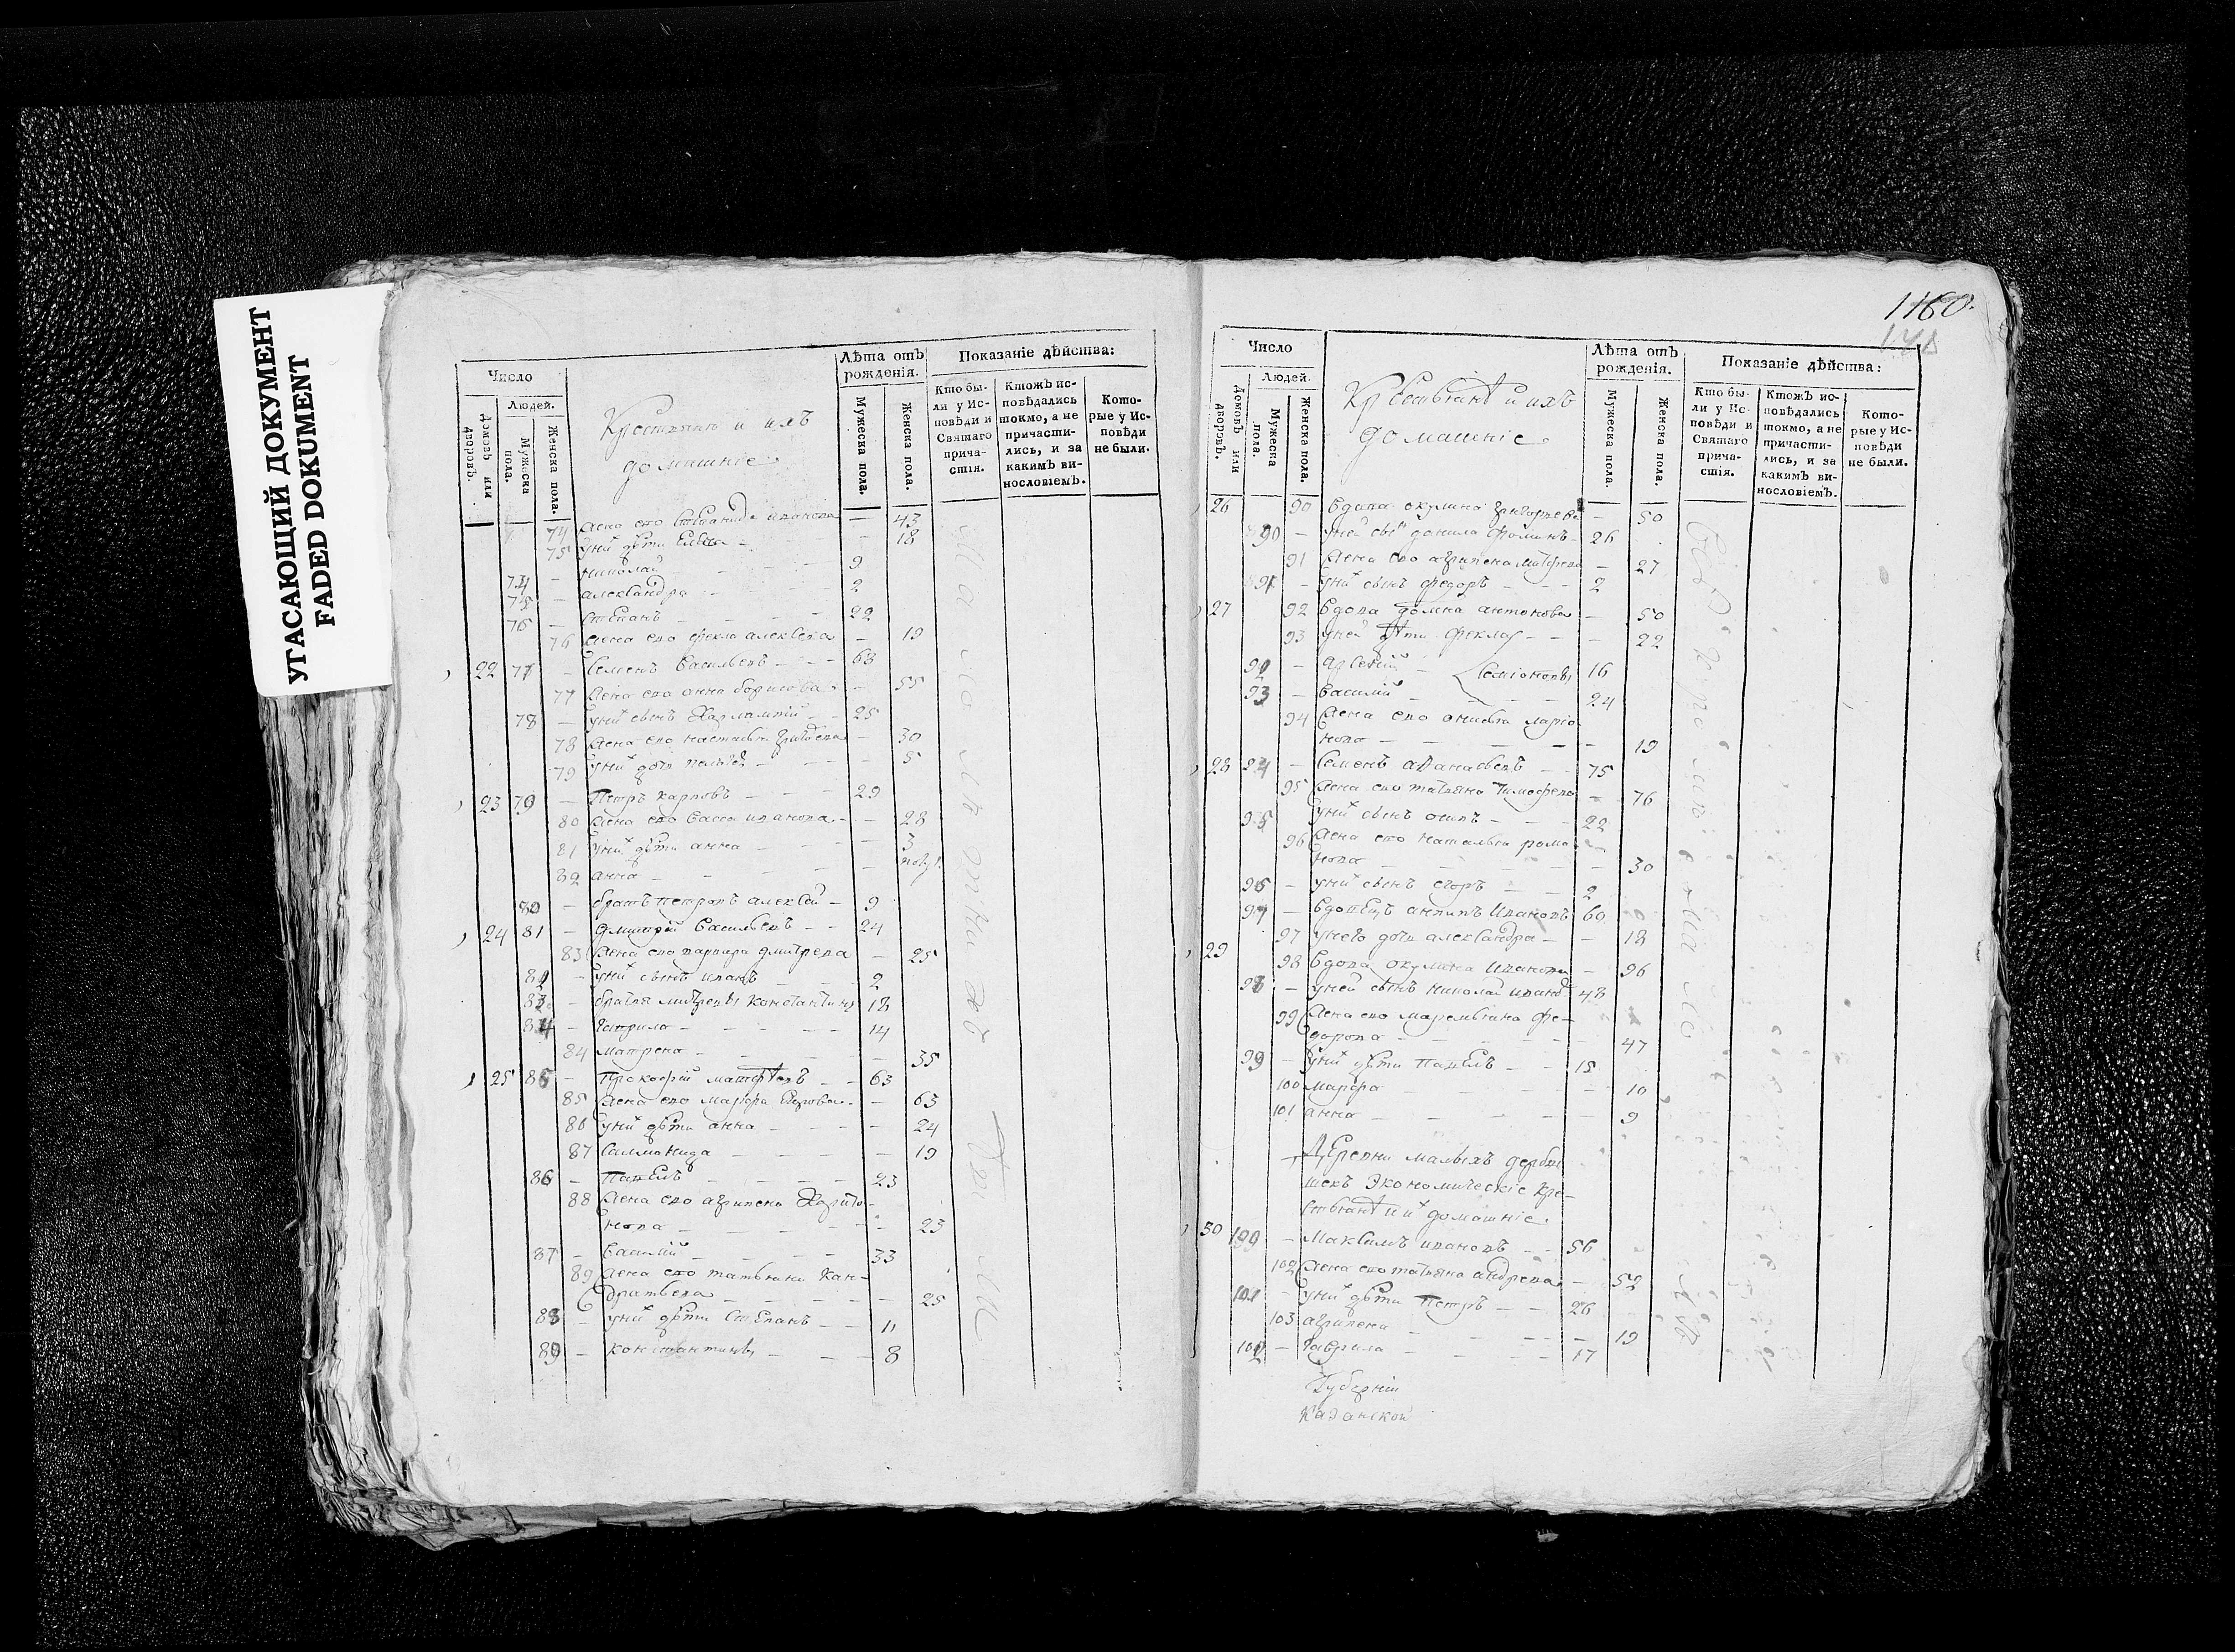 УГАСАЮЩИЙ ДОКУМЕНТ
FADED DOKUMENT
Число
Людей.
Домовъ или дворовъ.
Мужеска пола.
Женска пола.
и ихъ
домашніе
Лѣта отъ рожденія.
Мужеска пола.
Женска пола.
Показаніе дѣйства:
Кто были у Исповѣди и Святаго причастія.
Ктожъ исповѣдались токмо, а не причастились, и за какимъ винословіемъ.
Которые у Исповѣди не были.
74 жена ево Степанида иванова — 43
75 у них дѣти Елена — 18
николай 9
александра 2
76 — степанъ — 22
76 жена ево фекла алексѣева — 19
22 77 — Семенъ Васильевъ — 63
77 жена ево анна борисова — 55
78 — у них сынъ Харлампий — 25
78 жена ево настасья — 30
79 у них дочь — 5
23 79 — Петръ карповъ — 29
80 жена ево Васса иванова — 28
81 у них дѣти анна — 3
82 анна — полуг.
80 — братъ петровъ алексѣй — 9
24 81 — дмитрей Васильевъ — 24
83 жена ево варвара дмитрева — 25
82 — у них сынъ иванъ 2
83 — братья митревы константинъ 18
84 — Гаврила — 14
84 матрена — 35
25 85 — Прокофій матфѣевъ — 63
85 жена ево марфа — 63
86 у них дѣти анна — 24
87 Саламонида — 19
86 — Павелъ — 23
88 жена ево агрипена Харито-
нова — 23
87 — Василій — 33
89 жена ево татьяна Кан-
дратьева — 25
88 — у них дѣти Степанъ — 11
89 — константинъ — 8
1160.
Число
Людей.
Домовъ или дворовъ.
Мужеска пола.
Женска пола.
и ихъ
домашніе.
Лѣта отъ рожденія.
Мужеска пола.
Женска пола.
Показаніе дѣйства:
Кто были у Исповѣди и Святаго причастія.
Ктожъ исповѣдались токмо, а не причастились, и за какимъ винословіемъ.
Которые у Исповѣди не были.
26 90 Вдова окулина григорьева — 50
90 — у ней сынъ данила фоминъ — 26
91 жена ево агрипена матфева — 27
91 — у них сынъ федоръ — 2
27 92 Вдова домна антонова — 50
93 у ней дѣти фекла — 22
92 — арсеній — Семіоновы 16
93 — василій — 24
94 жена ево анисья ларіо-
нова — 19
28 94 — Семенъ аѳанасьевъ — 75
95 жена ево татьяна тимофева — 76
95 у них сынъ осипъ — 22
96 жена ево наталья рома-
нова — 30
96 — у них сынъ егоръ — 2
97 — Вдовецъ антипъ Ивановъ 60
97 у него дочь александра — 18
29 98 Вдова окулина Иванова — 96
98 — у ней сынъ николай ивановъ 48
99 жена ево маремьяна фе-
дорова — 47
99 — у них дѣти Павелъ — 15
100 марфа — 10
101 анна — 9
Деревни малыхъ дербы
шекъ Экономическіе кре-
стьяне и их домашніе.
30 100 — Максимъ ивановъ — 56
102 жена ево татьяна андрева — 52
101 — у них дѣти Петръ — 26
103 агрипена — 19
102 — Гаврила — 17
Губерніи
Казанской